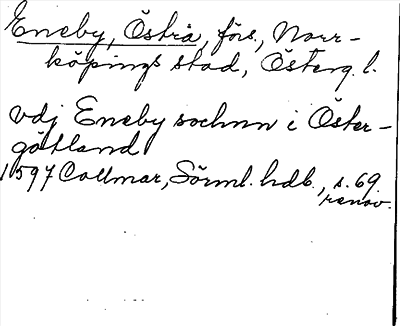 Eneby, Östra, förs., Norr-
köpings stad, Österg. l.
vdj Eneby sochnn i Öster-
götland
1597 Collmar, Sörml. hdb., s. 69.
renov.